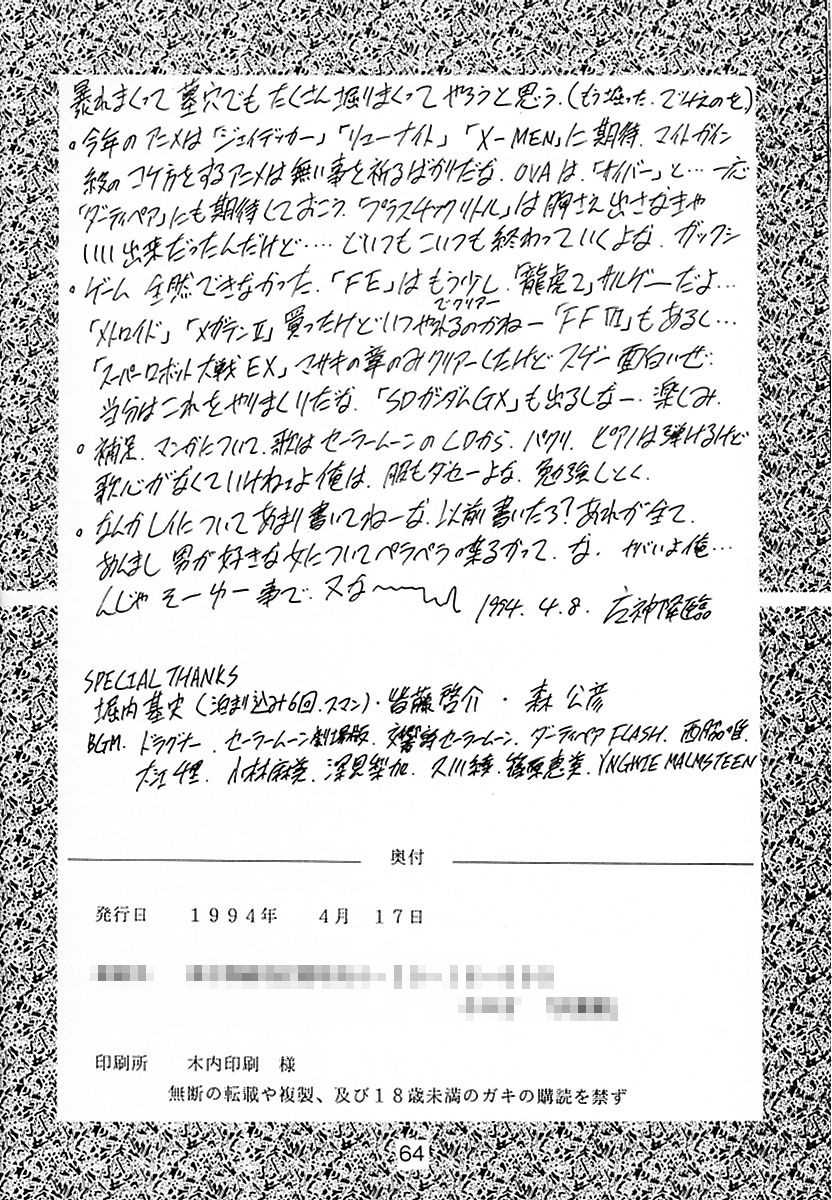 暴れまくって 墓穴でも たくさん 堀りまくって やろうと思う.(もう堀った.でねえのを)
。今年の アニメは「ジェイデッカー」「リューナイト」「X-MEN」に 期待. マイトガイン
級の コケ方をするアニメは 無い事を祈るばかりだな. OVAは.「ガイバー」と… 一応
「ダーティペア」にも 期待しておこう.「プラスチックリトル」は 胸さえ出さなきゃ
いい出来だったんだけど…. どいつもこいつも終わっていくよな. ガックシ
。ゲーム 全然できなかった.「FE」は もう少し.「龍虎2」サルゲーだよ…
でクリアー
「メトロイド」「メガテンⅡ」買ったけどいつやれるのかねー「FFⅥ」もあるし…
「スーパーロボット大戦EX」マサキの章のみクリアーしたけど スゲー 面白いぜ.
当分はこれをやりまくりだな.「SDガンダムGX」も出るしなー. 楽しみ.
。補足. マンガについて. 歌は セーラームーンの CDから. パクリ. ピアノは弾けるけど
歌心がなくていけねェよ 俺は. 服もダセーよな. 勉強しとく.
。なんかレイについて あまり書いてねーな. 以前書いたろ? あれが全て.
あんまし 男が好きな女について ペラペラ喋るかって. な. ヤバいよ俺…
んじゃ そーゆー事で. 又な〜
1994. 4. 8. 降臨
SPECIAL THANKS
堀内 基史 (泊まり込み6回. スマン)・皆藤啓介 ・ 森 公彦
BGM. ドラグナー . セーラームーン劇場版. 交響詩セーラームーン. ダーティペア FLASH.
大江千里. 小林麻美. 深見梨加. 久川綾. 篠原恵美. YNGWIE MALMSTEEN
奥付
発行日 1994年 4月 17日
印刷所 木内印刷 様
無断の転載や複製、及び18歳未満のガキの購読を禁ず
64